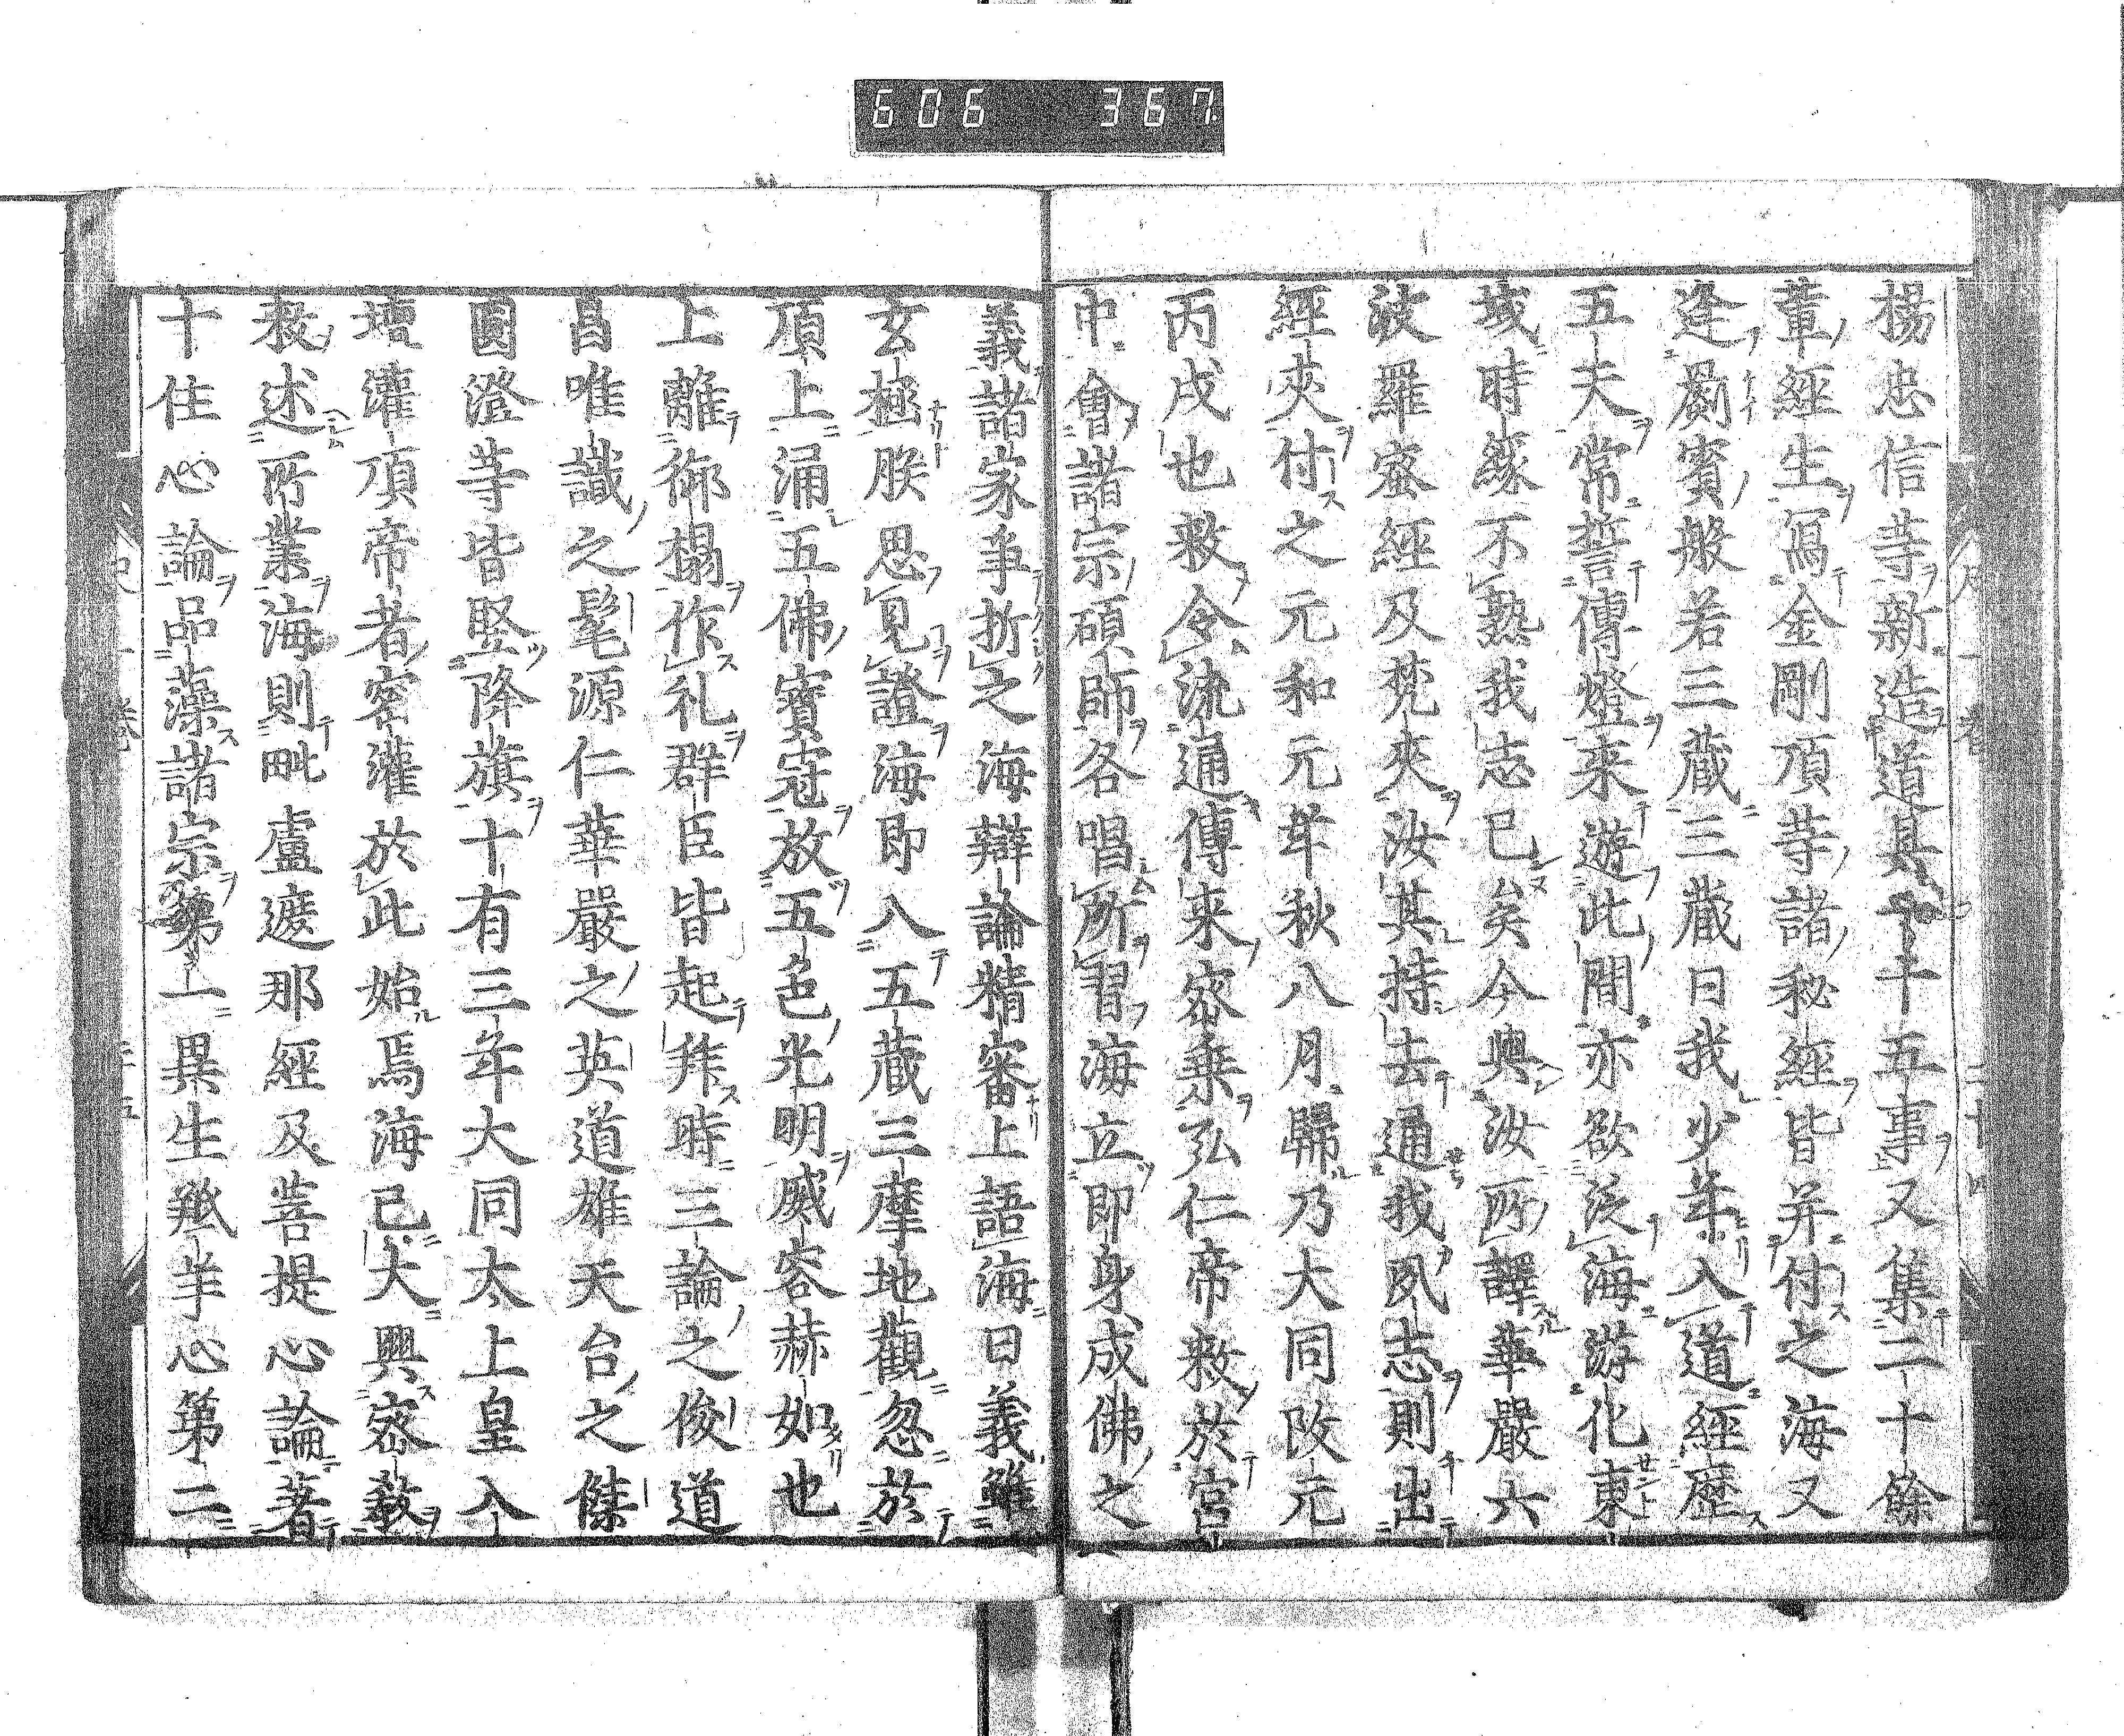 606 367
楊忠信等新造道具一十五事又集二十餘
輩經生寫金剛頂等諸秘經皆并付之海又
逢罽賓般若三藏三藏曰我少年入道經歷
五天常誓傳燈来遊此間亦欲泛海游化東
域時縁不熟我志已矣今與汝所譯華嚴六
波羅蜜經及梵夾汝其持去通我夙志則出
經夾付之元和元年秋八月歸乃大同改元
丙戌也敕令流通傳来密乗弘仁帝敕於宮
中會諸宗碩師各唱所習海立即身成佛之
義諸家争折之海辯論精審上語海曰義雖
玄極朕思見證海即入五藏三摩地觀忽於
頂上涌五佛寶冠放五色光明威容赫如也
上離御榻作礼群臣皆起拜時三論之俊道
昌唯識之髦源仁華嚴之英道雄天台之傑
圓澄等皆竪降旗十有三年大同太上皇入
壇灌頂帝者密灌於此始焉海已大興密教
敕述所業海則毗盧遮那經及菩提心論著
十住心論品藻諸宗第一異生羝羊心第二